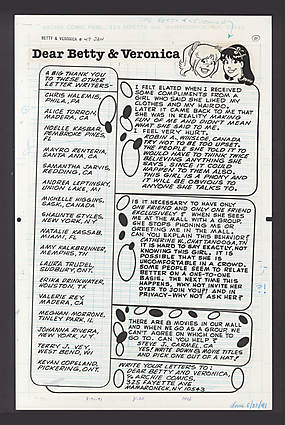 BETTY & VERONICA # 47 JAN
Dear Betty & Veronica
A BIG THANK YOU
TO THESE OTHER
LETTER WRITERS-
CHRIS HALEMIS,
PHILA, PA
ALICE TORRON,
MADERA, CA
NOELLE KASBAR,
PEMBROKE PINES,
FL
MAYRO RENTERIA,
SANTA ANA, CA
SAMANTHA JARVIS,
REDDING, CA
ANDREA LEPTINSKY,
UNION LAKE, MI
MICHELLE HIGGINS,
SASK, CANADA
SHAUNTE STYLES,
NEW YORK, N.Y.
NATALIE KASSAR,
MIAMI, FL
AMY KALKBRENNER,
MEMPHIS, TN
LAURA TRUDEL,
SUDBURY, ONT.
ERIKA DRINKWATER,
HOUSTON, TX
VALERIE REY,
MADERA, CA
MEGHAN MORRONE,
TINLEY PARK, IL
JOHANNA RIVERA,
NEW YORK, N.Y.
TERRY J. VEY,
WEST BEND, WI
KEVAN COPELAND,
PICKERING, ONT.
I FELT ELATED WHEN I RECEIVED
SOME COMPLIMENTS FROM A
GIRL WHO SAID SHE LIKED MY
CLOTHES AND MY HAIRDO.
LATER IT CAME BACK TO ME THAT
SHE WAS IN REALITY MAKING
FUN OF ME AND DIDN'T MEAN
WHAT SHE SAID TO ME.
I FEEL VERY HURT.
ROBIN A., WINSLOE, CANADA
TRY NOT TO BE TOO UPSET.
THE PEOPLE SHE TOLD IT TO
SHOULD HAVE TO THINK TWICE
BELIEVING ANYTHING SHE
SAYS, SINCE IT COULD
HAPPEN TO THEM ALSO.
THIS GIRL IS A PHONY AND
IT WILL BE OBVIOUS TO
ANYONE SHE TALKS TO.
IS IT NECESSARY TO HAVE ONLY
ONE FRIEND AND ONLY ONE FRIEND
EXCLUSIVELY? WHEN SHE SEES
ME AT THE MALL WITH A GROUP,
SHE STOPS PHONING ME OR
GREETING ME IN THE MALL.
CAN YOU EXPLAIN THIS BEHAVIOR?
CATHERINE K., CHATTANOOGA, TN
IT IS HARD TO SAY EXACTLY, NOT
KNOWING THIS GIRL, IT IS
POSSIBLE THAT SHE IS
UNCOMFORTABLE IN A CROWD.
SOME PEOPLE SEEM TO RELATE
BETTER ON A ONE-TO-ONE
BASIS, THE NEXT TIME THIS
HAPPENS, WHY NOT INVITE HER
OVER TO JOIN YOU? AND IN
PRIVACY-WHY NOT ASK HER?
THERE ARE 13 MOVIES IN OUR MALL
AND WHEN WE GO AS A GROUP, WE
CAN'T AGREE ON WHICH ONE TO
GO TO. CAN YOU HELP?
STEVE J., CARMEL, CA
YES! WRITE DOWN 13 MOVIE TITLES
AND PICK ONE OUT OF A HAT!
WRITE YOUR LETTERS TO:
DEAR BETTY AND VERONICA,
% ARCHIE COMICS,
325 FAYETTE AVE
MAMARONECK, NY 10543